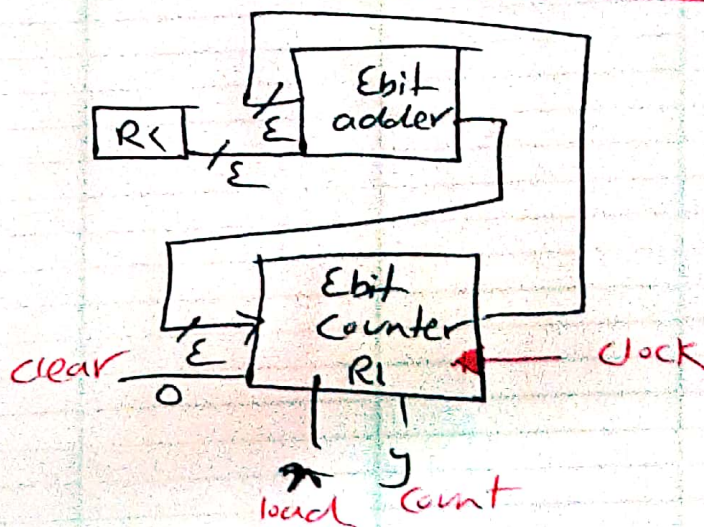 ٤bit
adder
٤
R٢
٤
٤bit
counter
R1
٤
clear
0
clock
x
y
load
count